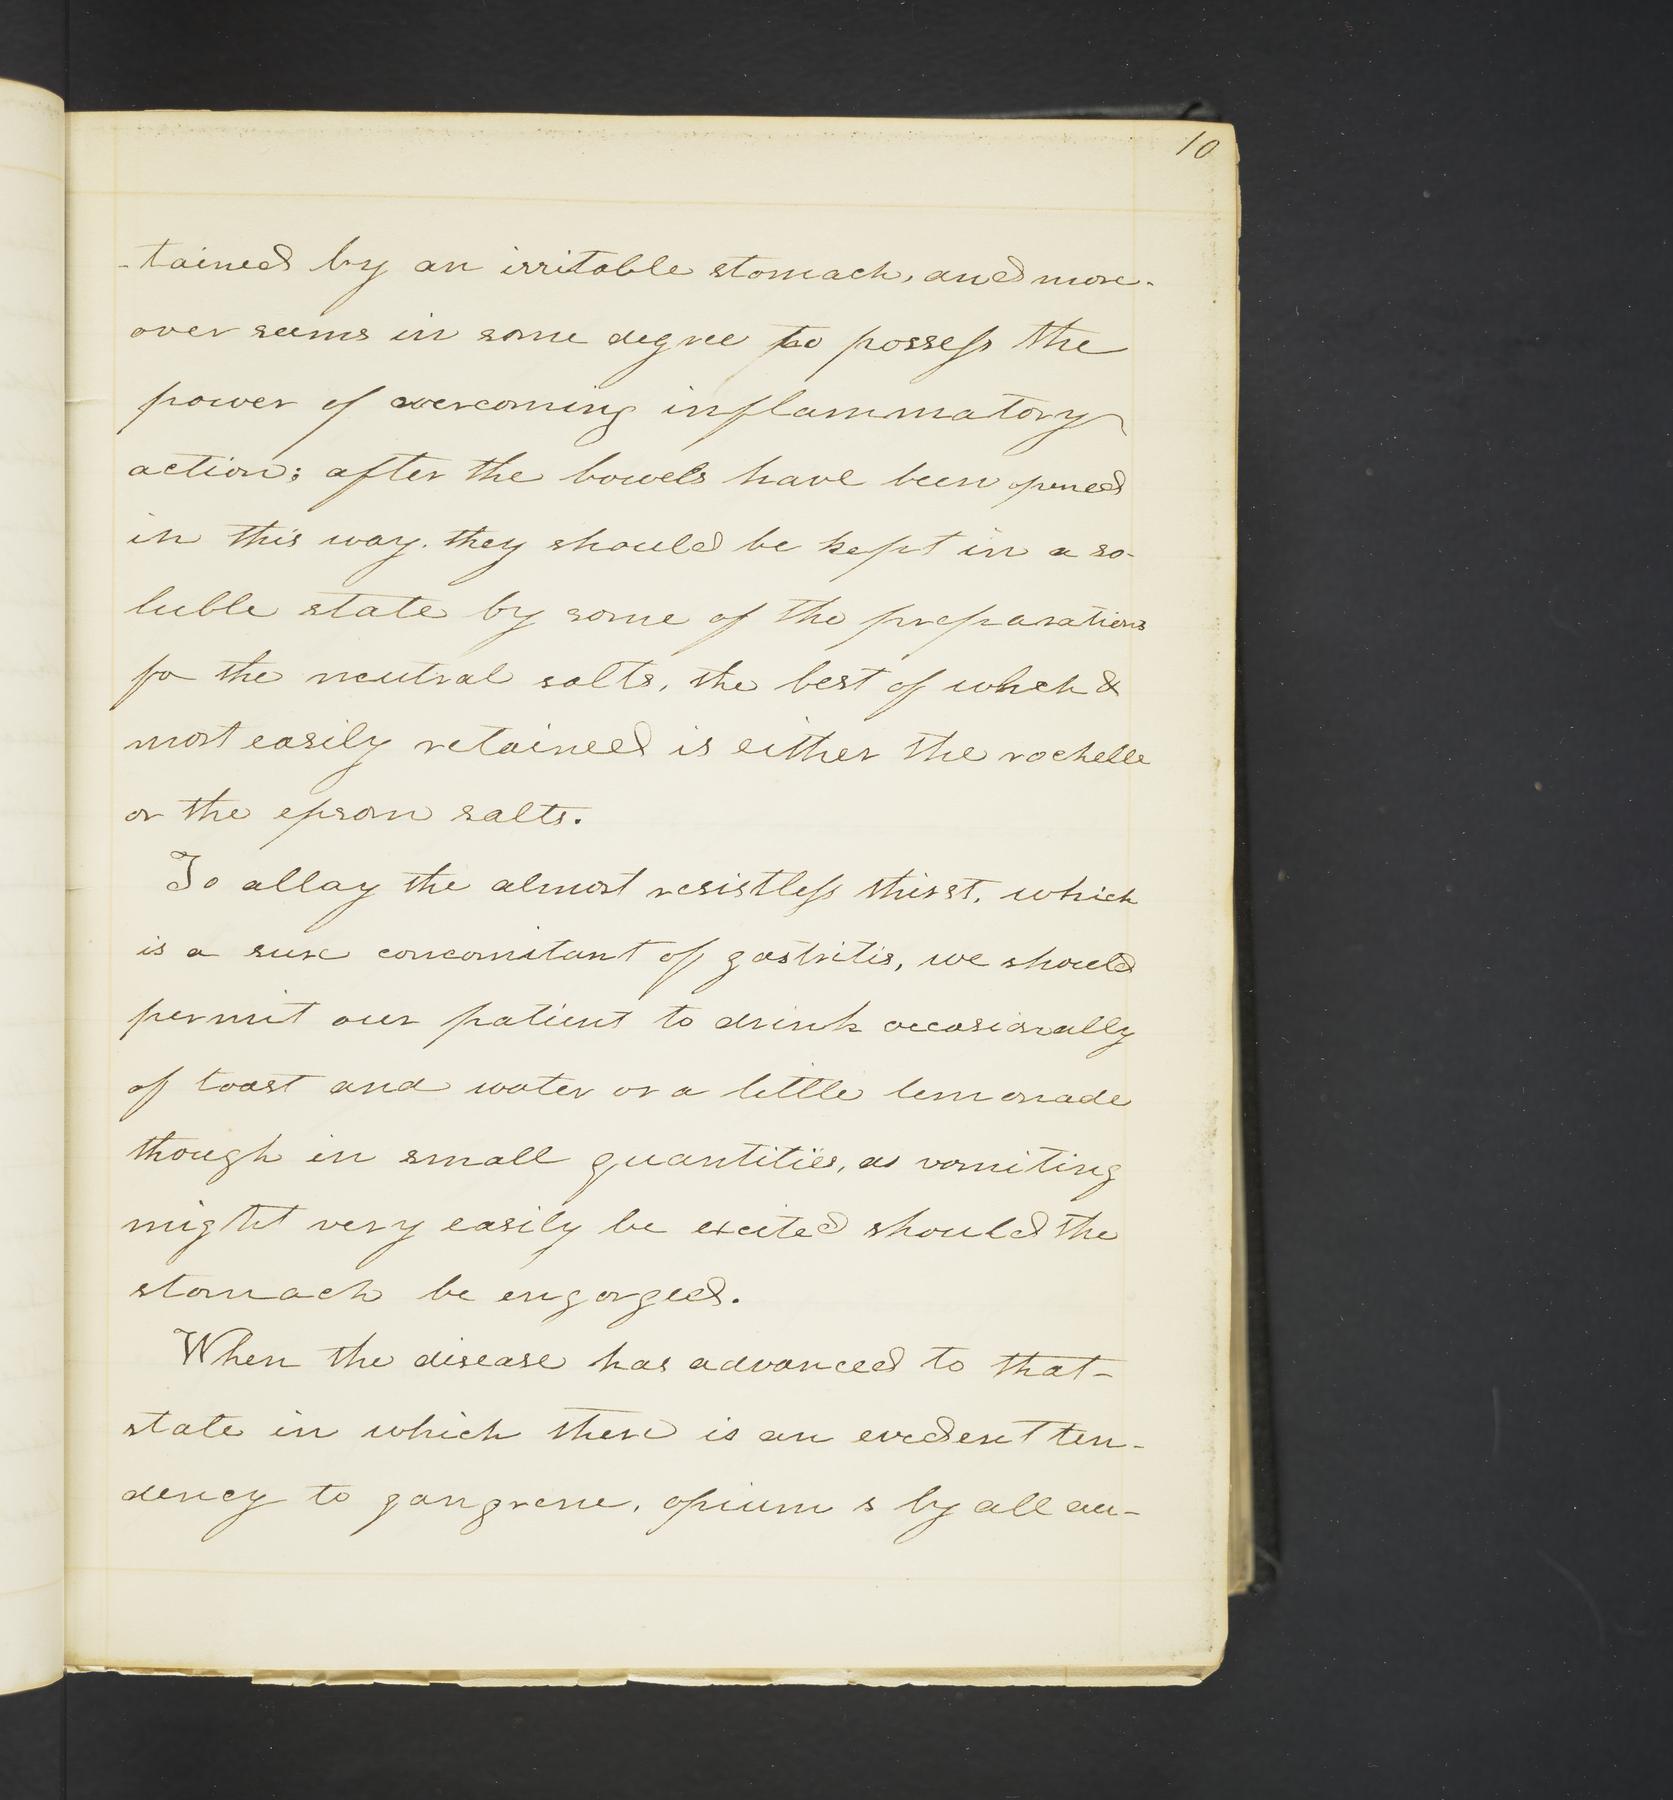 10
-tained by an irritable stomach, and more-
over seems in some degree to possess the
power of overcoming inflammatory
action; after the bowels have been opened
in this way. they should be kept in a so-
luble state by some of the preparations
fo the neutral salts, the best of which &
most easily retained is either the rochelle
or the epsom salts.
To allay the almost resistless thirst, which
is a sure concomitant of gastritis, we should
permit our patient to drink occasionally
of toast and water or a little lemonade
though in small quantities, as vomiting
might very easily be excited should the
stomach be engorged.
When the disease has advanced to that-
state in which there is an evident ten-
dency to gangrene, opium s by all au-